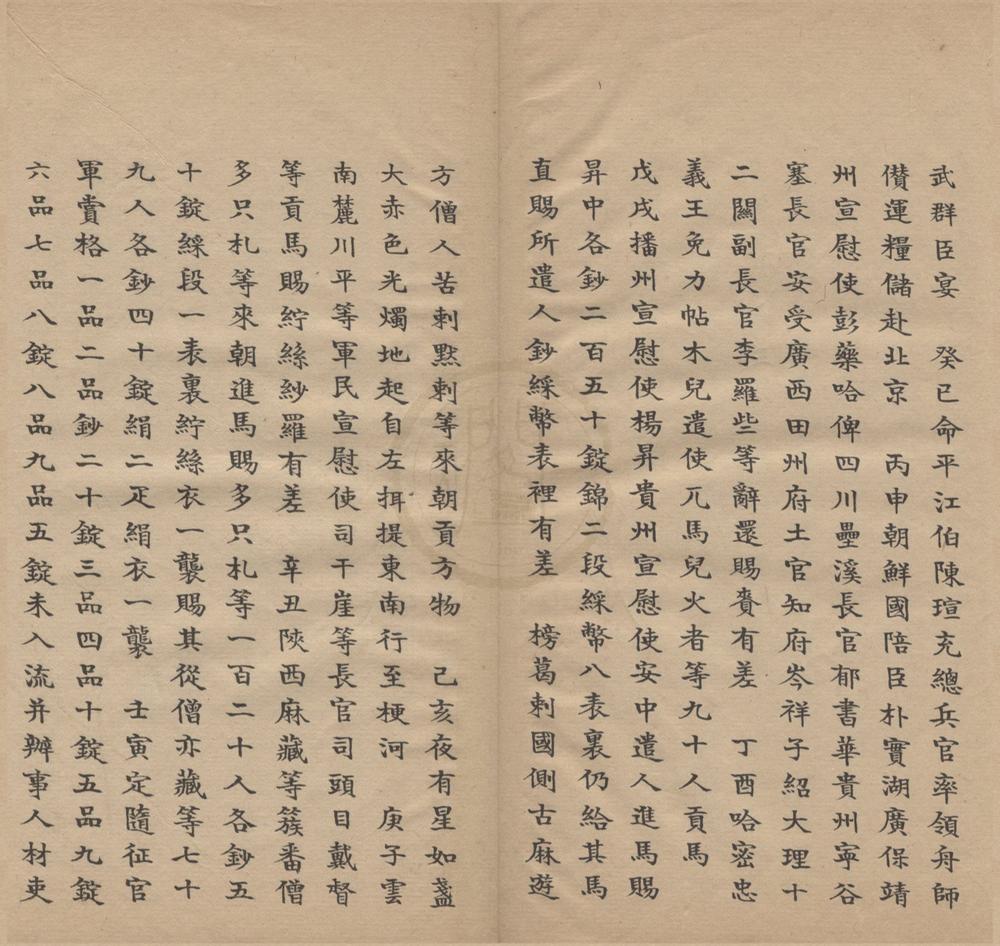 武群臣宴　癸巳命平江伯陳瑄充總兵官率領舟師
儧運糧儲赴北京　丙申朝鮮國陪臣朴實湖廣保靖
州宣慰使彭藥哈俾四川疊溪長官郁書華貴州寧谷
塞長官安受廣西田州府土官知府岑祥子紹大理十
二關副長官李羅些等辭還賜賚有差　丁酉哈密忠
義王免力帖木兒遣使兀馬兒火者等九十人貢馬
戊戌播州宣慰使楊昇貴州宣慰使安中遣人進馬賜
昇中各鈔二百五十錠錦二段綵幣八表裏仍給其馬
直賜所遣人鈔綵幣表裡有差　榜葛剌國側古麻遊
方僧人苦剌默剌等來朝貢方物　己亥夜有星如盞
大赤色光燭地起自左揖提東南行至梗河　庚子雲
南麓川平等軍民宣慰使司干崖等長官司頭目戴督
等貢馬賜紵絲紗羅有差　辛丑陝西麻藏等簇番僧
多只札等來朝進馬賜多只札等一百二十人各鈔五
十錠綵段一表裏紵絲衣一襲賜其從僧亦藏等七十
九人各鈔四十錠絹二疋絹衣一襲　壬寅定隨征官
軍賞格一品二品鈔二十錠三品四品十錠五品九錠
六品七品八錠八品九品五錠未入流并辦事人材吏